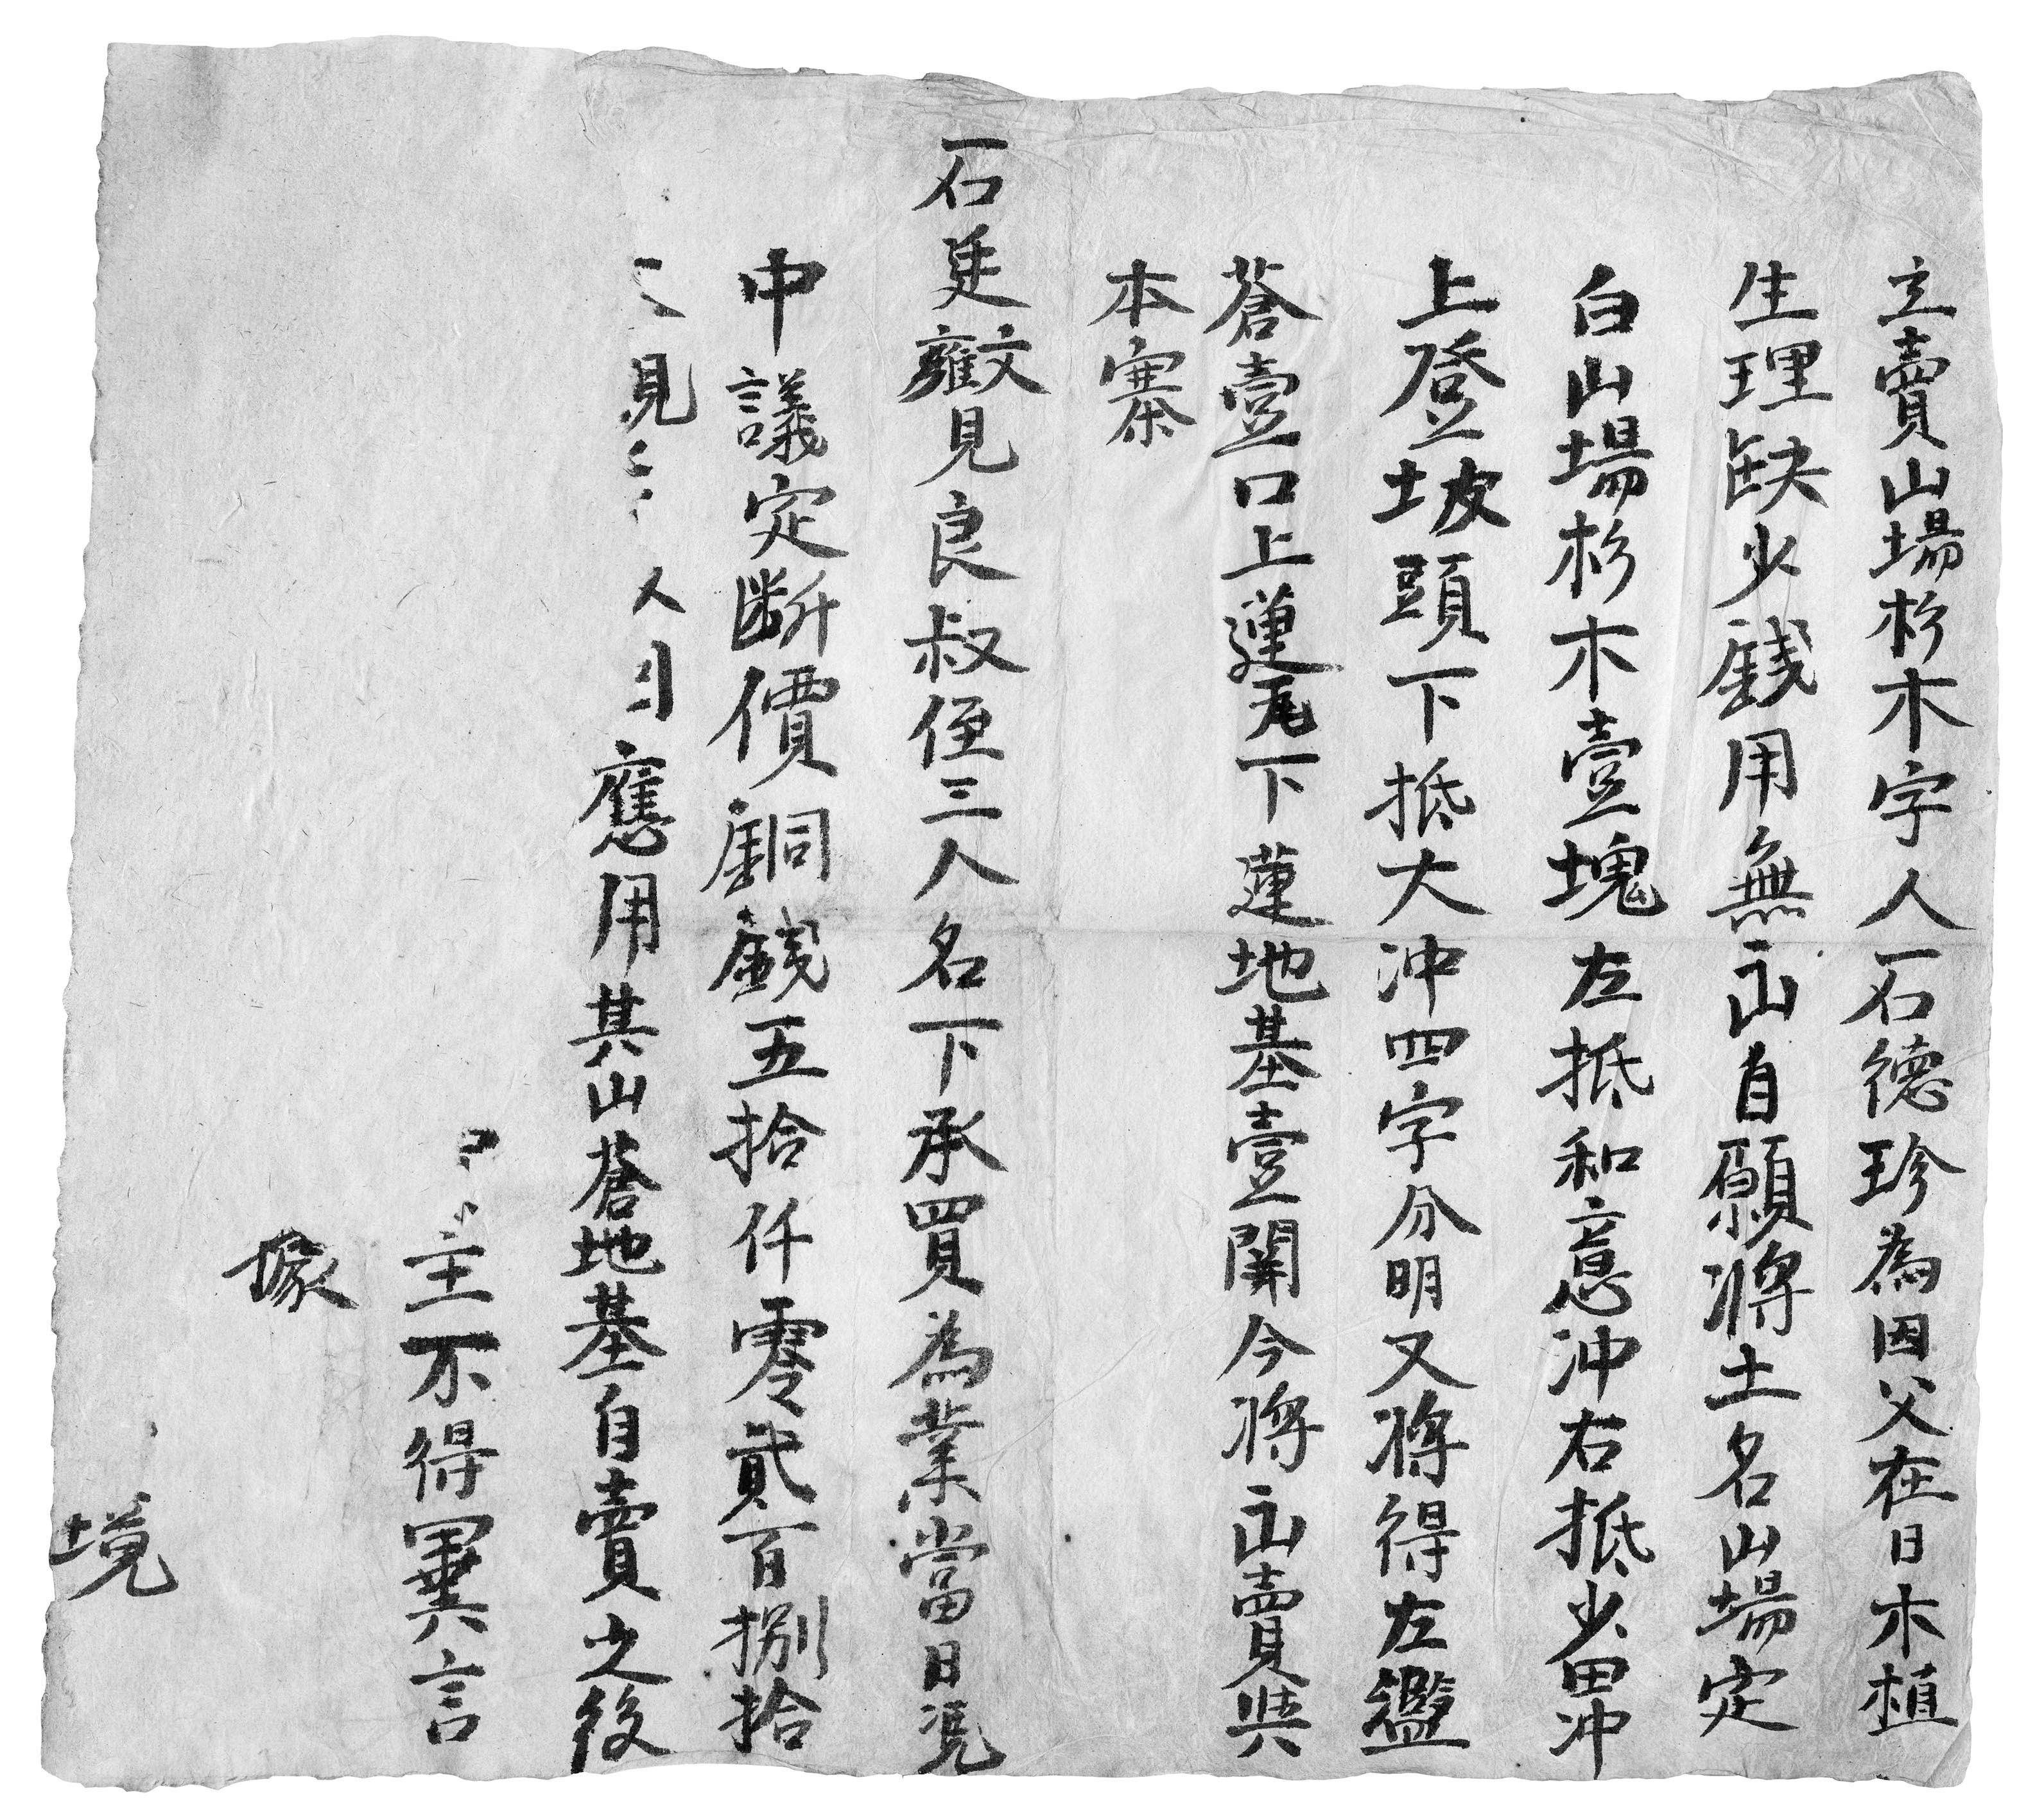 立賣山場杉木字人石德珍為因父在日木植
生理缺少錢用無山自願將土名山場定
白山場杉木壹塊左抵和意沖右抵少田冲
上登坡頭下抵大沖四字分明又將得左鑑
蒼壹口上蓮尾下蓮地基壹間今將山賣與
本寨
石廷文見良叔侄三人名下承買為業當日凭
中議定断價銅錢五拾仟零貳百捌拾
見 人 應用其山蒼地基自賣之後
主不得異言
據
境